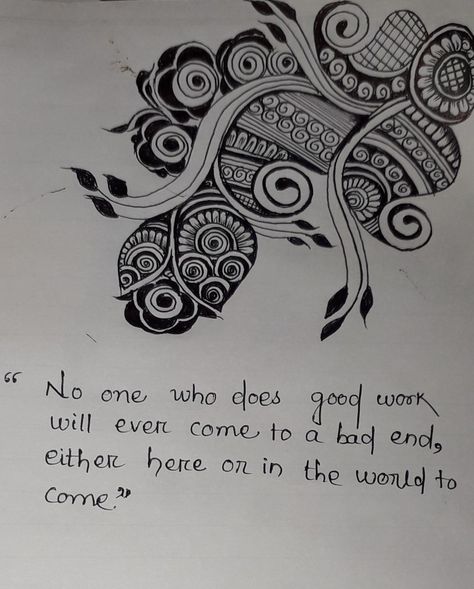 “ No one who does good work
will ever come to a bad end,
either here or in the world to
come.”